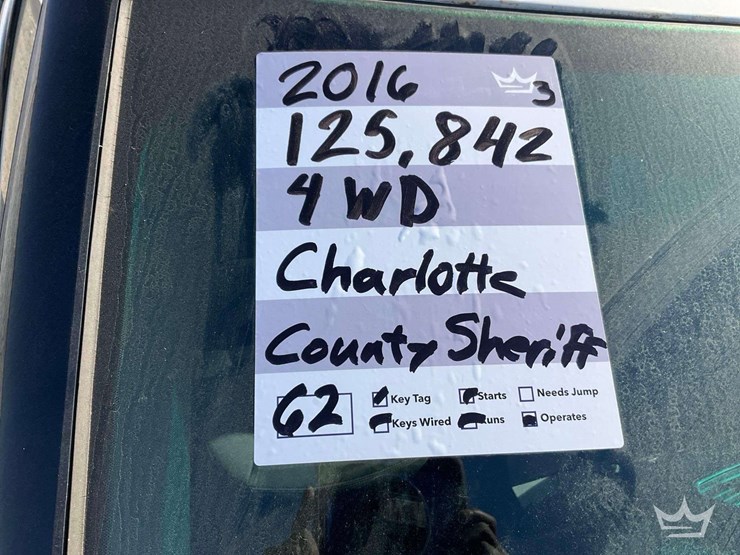 2016 3
125,842
4WD
Charlotte
County Sheriff
62
Key Tag Starts Needs Jump
Keys Wired Runs Operates